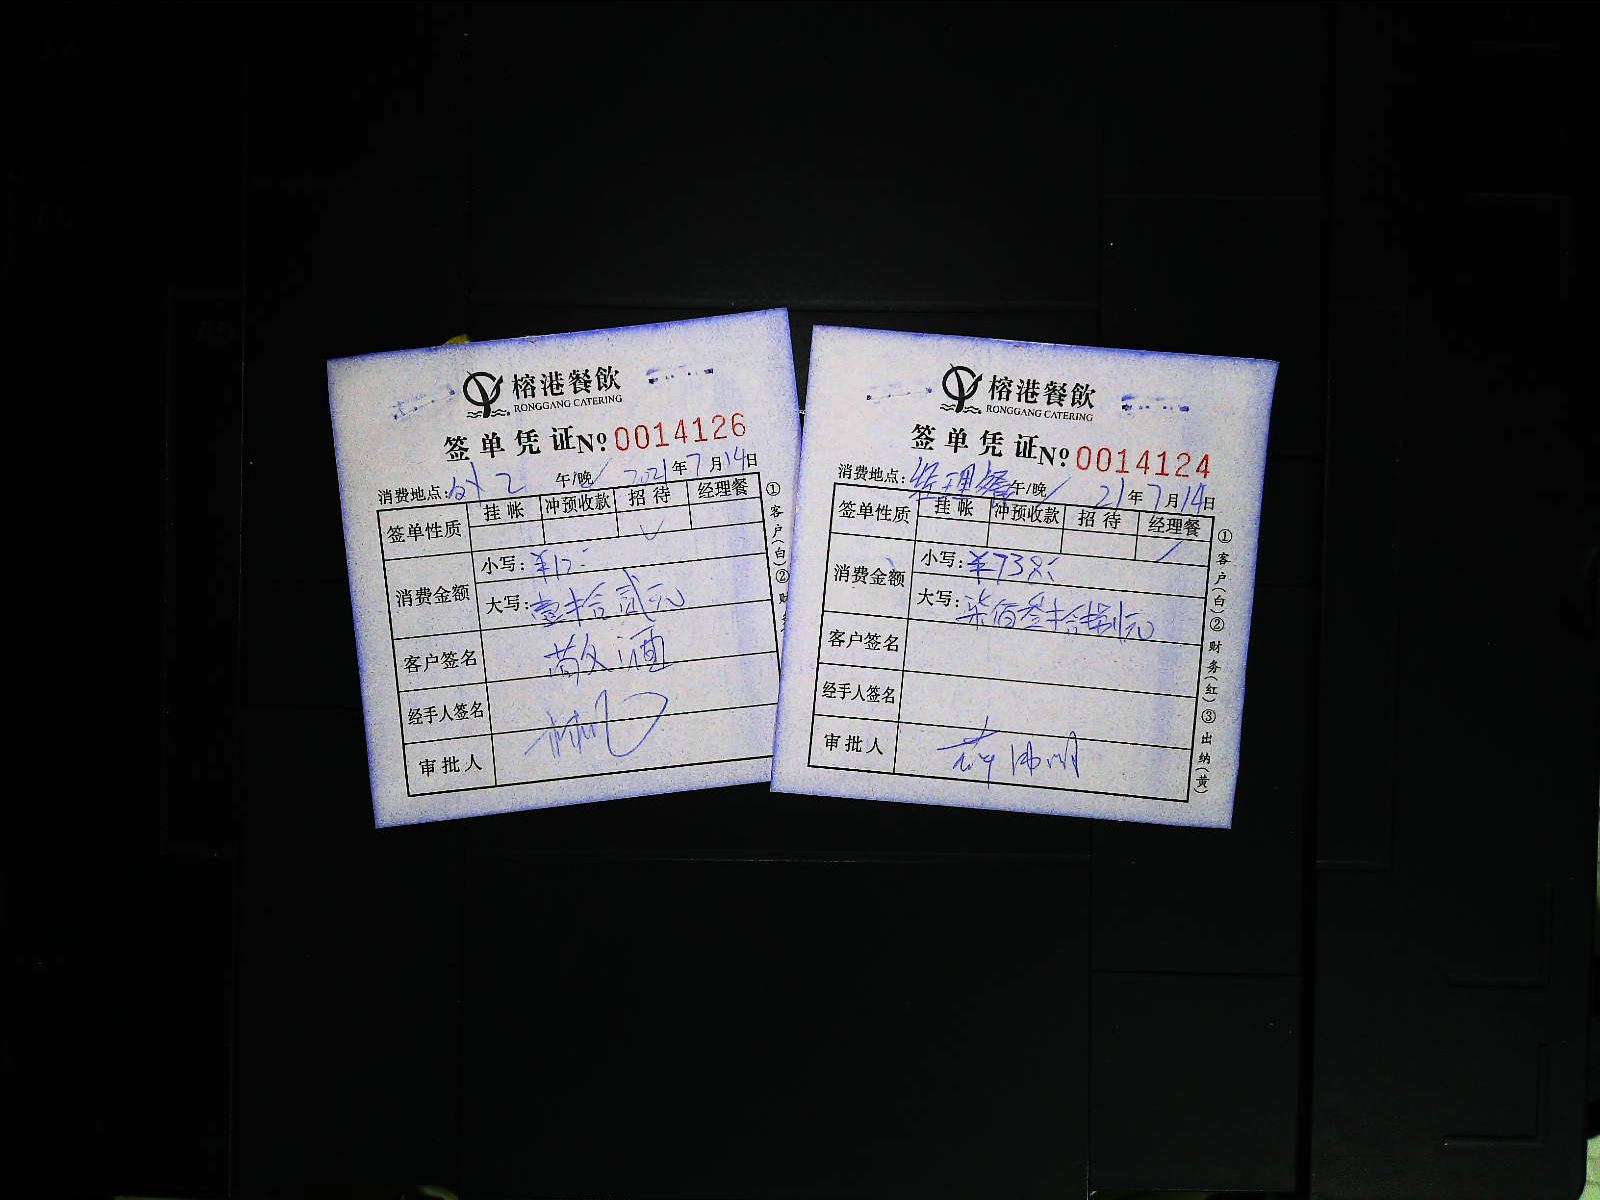 榕港餐飲
RONGGANG CATERING
签单凭证 Nº 0014126
消费地点: 2 午/晚 2021年7月14日
签单性质 挂帐 冲预收款 招待 经理餐
消费金额 小写: ¥12.-
大写: 壹拾贰元
客户签名 敬酒
经手人签名
审批人
①客户(白)②财
榕港餐飲
RONGGANG CATERING
签单凭证 Nº 0014124
消费地点: 经理餐 午/晚 21年7月14日
签单性质 挂帐 冲预收款 招待 经理餐
消费金额 小写: ¥738.-
大写: 柒佰叁拾捌元
客户签名
经手人签名
审批人
①客户(白)②财务(红)③出纳(黄)